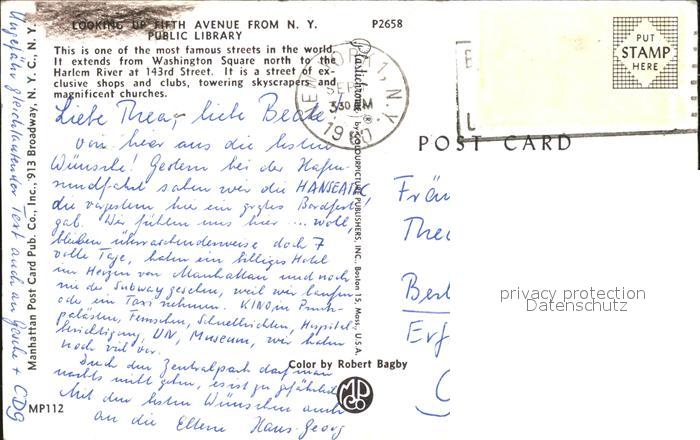 LOOKING UP FIFTH AVENUE FROM N. Y.
PUBLIC LIBRARY
P2658
This is one of the most famous streets in the world.
It extends from Washington Square north to the
Harlem River at 143rd Street. It is a street of ex-
clusive shops and clubs, towering skyscrapers and
magnificent churches.
Liebe Thea, liebe Beate!
von hier aus die besten
Wünsche! Gestern bei der Hafen-
rundfahrt sahen wir die HANSEATIC,
die vorgestern hier ein großes Bordfest
gab. Wir fühlen uns hier ... wohl,
bleiben überraschenderweise doch 7
volle Tage, haben ein billiges Hotel
im Herzen von Manhattan und noch
nie die Subway gesehen, weil wir laufen
oder ein Taxi nehmen. KINO in Prunk-
palästen, Fernsehen, Schnellrichter, Hospital-
besichtigung, UN, Museum, wir haben
noch viel vor.
Durch den Zentralpark darf man
nachts nicht gehen, es ist zu gefährlich
Mit den besten Wünschen auch
an die Eltern Hans-Georg
Ungefähr gleichlautender Text auch an + CDG
Manhattan Post Card Pub. Co., Inc., 913 Broadway, N. Y. C., N. Y.
MP112
Plastichrome ® by COLOURPICTURE PUBLISHERS, INC., Boston 15, Mass., U.S.A.
Color by Robert Bagby
MPC
Co
NEW YORK 1, N.Y.
SEP
530 PM
PUT
STAMP
HERE
POST CARD
Fräu
Thea
Berl
Erf
privacy protection
Datenschutz